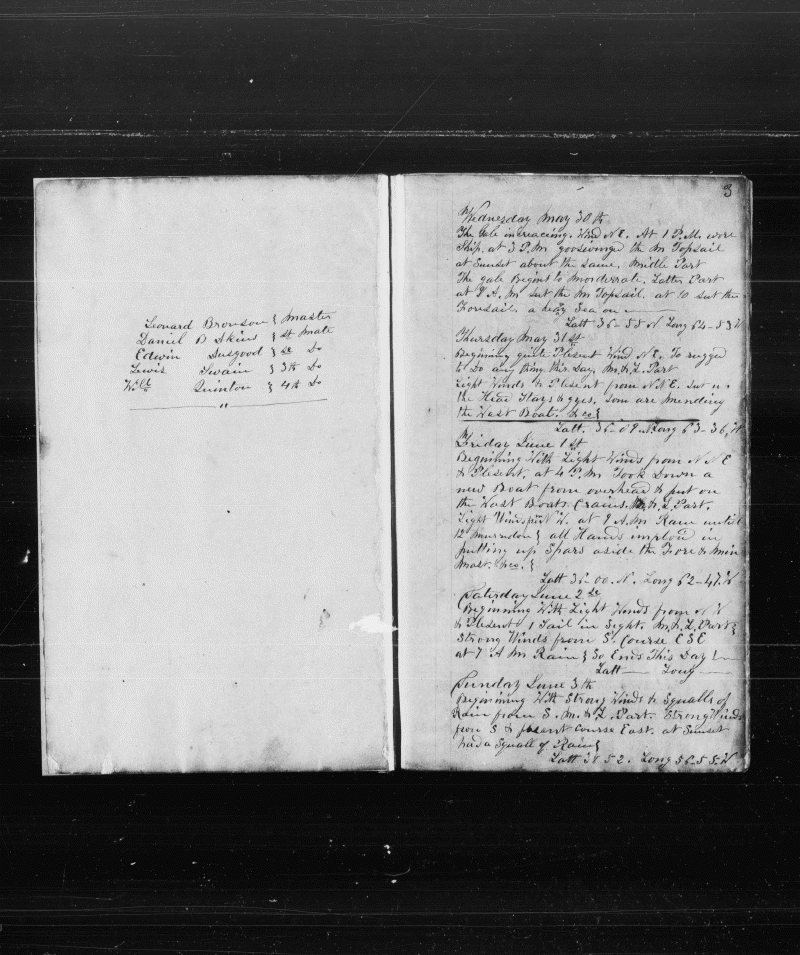 Leonard Bronson } Master
Daniel B Skins } 1st Mate
Edwin Susgood } 2e Do
Lewis Swain } 3th Do
Will Quinton } 4th Do
3
Wednesday May 30th
The Gale increacing. Wind N.E. At 1 P.M. wore
Ship. at 3 P.M. gooswinged the M Topsail
at Sunset about the same. Midle Part
The gale Begins to Morderrate. Latter Part
at 9 A.M. set the M Topsail. at 10 set the
Foresail. a hevy Sea on
Latt 36-58 N Long 64-53 W
Thursday May 31st
Beginning quite Plesent Wind N.E. To rugged
to Do any thing this day. M. & L. Part
Light Winds & Plesent from N.N.E. Set up
the Head Stays & gyes. Som are mending
the Wast Boat. &co }
Latt. 36-09 N. Long 63-36, W
Friday June 1st
Beginning With Light Winds from N N E
& Plesent. at 4 P.M. Took Down a
new Boat from overhead & put on
the Wast Boats Crains. M & L Part.
Light Winds W. at 9 A.M. Rain until
12 } all Hands imploid in
putting up Spars aside the Fore & Main
Mast. &co. }
Latt 36-00. N. Long 62-47. W
Saterday June 2se
Beginning With Light Winds from N W
& Plesent 1 Sail in Sight. M. & L. Part }
Strong Winds from S. Course E S E
at 7 A M Rain } So Ends This Day
Latt Long
Sunday June 3th
Beginning With Strong Winds & Squalls of
Rain from S. M. & L. Part. Strong Winds
from S & plesent Course East. at Sunset
had a Squall of Rain }
Latt 38 52. Long 56-58. W